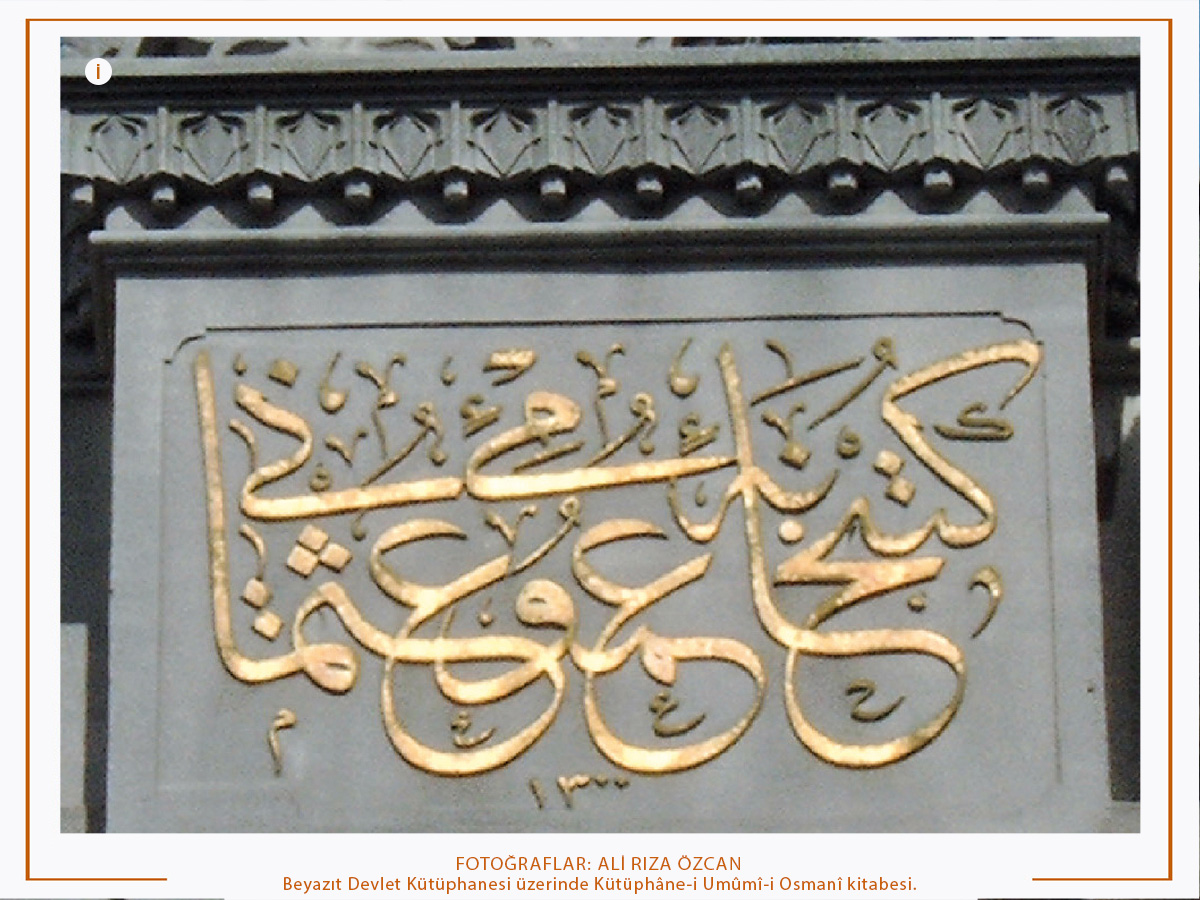 i
كتبخانهٔ عمومئ عثمانى
١٣٠٠
FOTOĞRAFLAR: ALİ RIZA ÖZCAN
Beyazıt Devlet Kütüphanesi üzerinde Kütüphâne-i Umûmî-i Osmanî kitabesi.